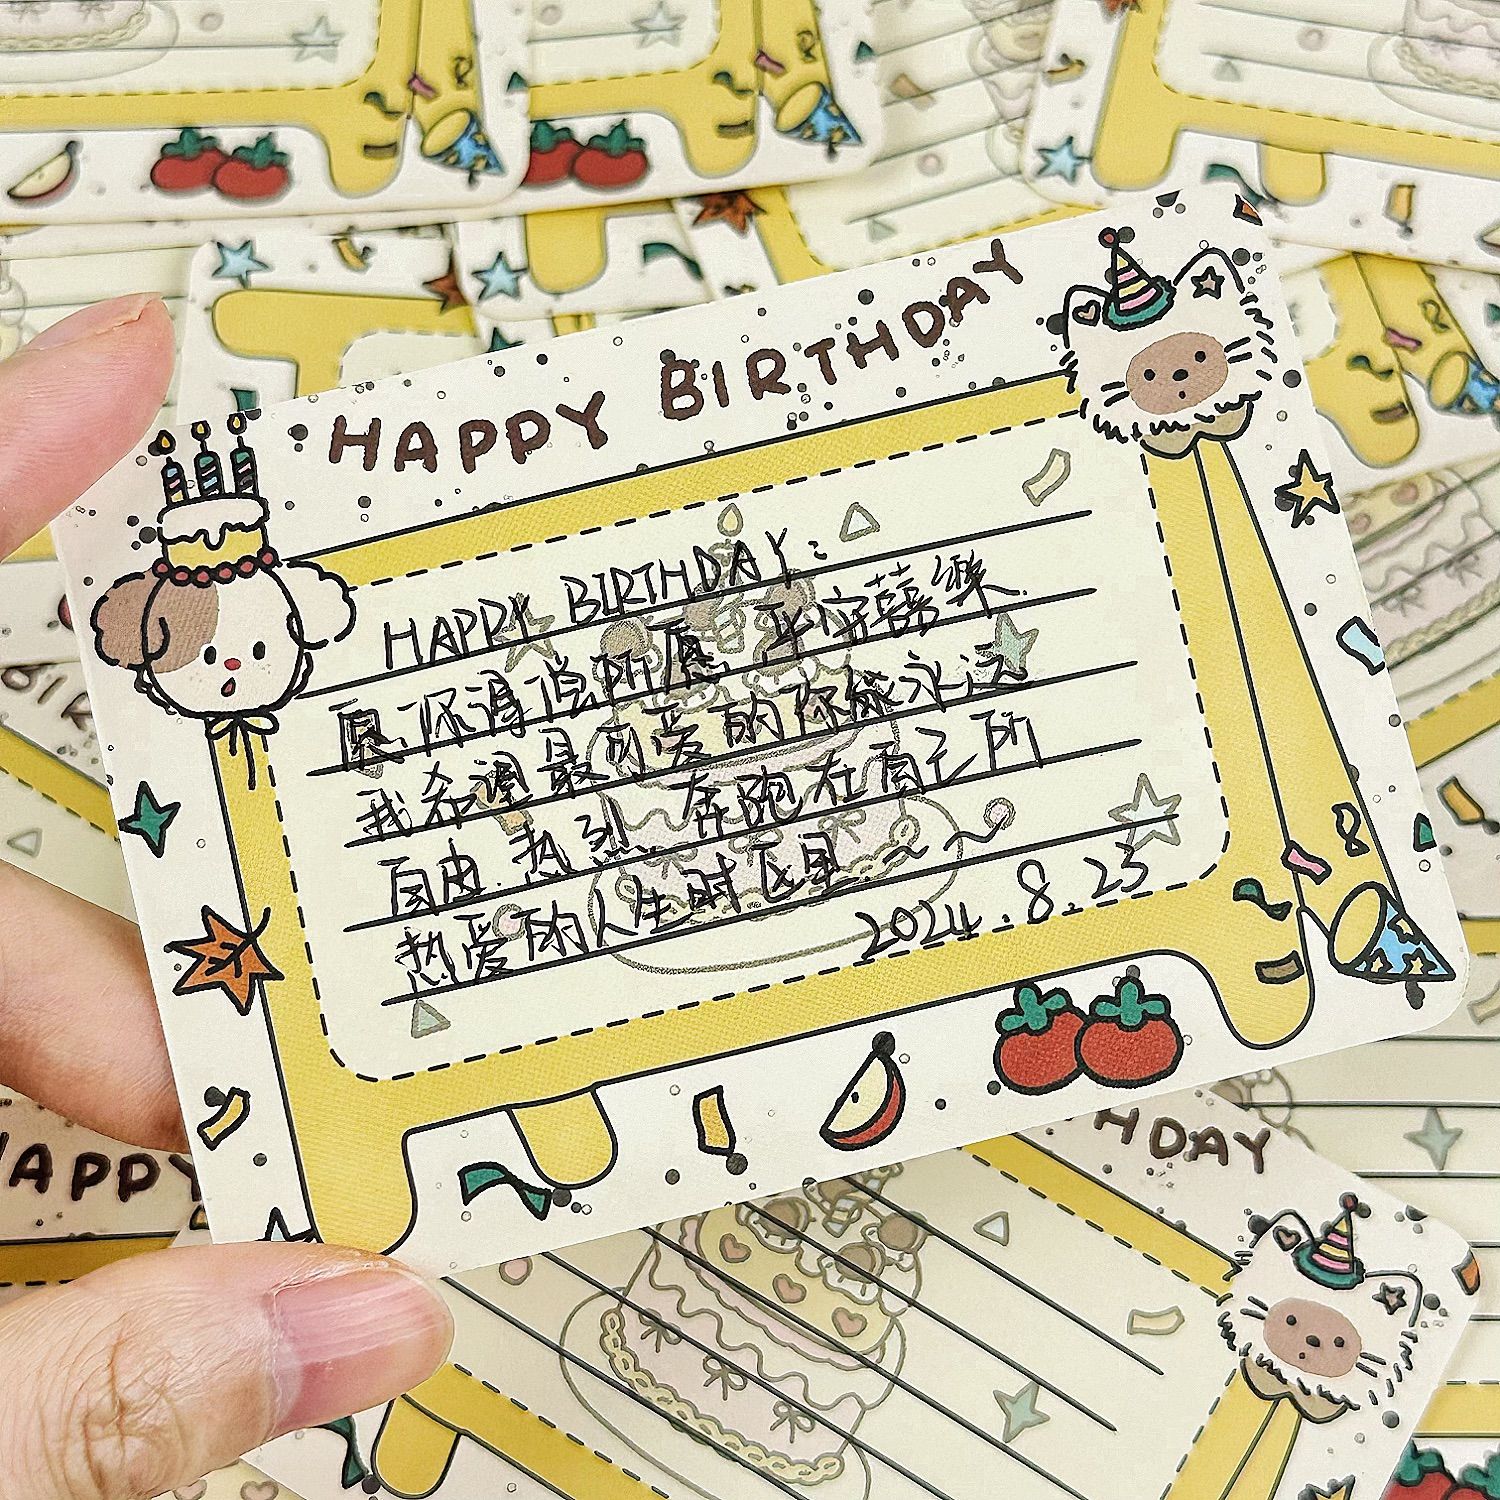 HAPPY BIRTHDAY
HAPPY BIRTHDAY:
愿你得偿所愿 平安喜樂.
我希望最可爱的你能永远
自由.热烈.奔跑在自己所
热爱的人生时区里.~~
2024.8.23
HAPPY
HDAY